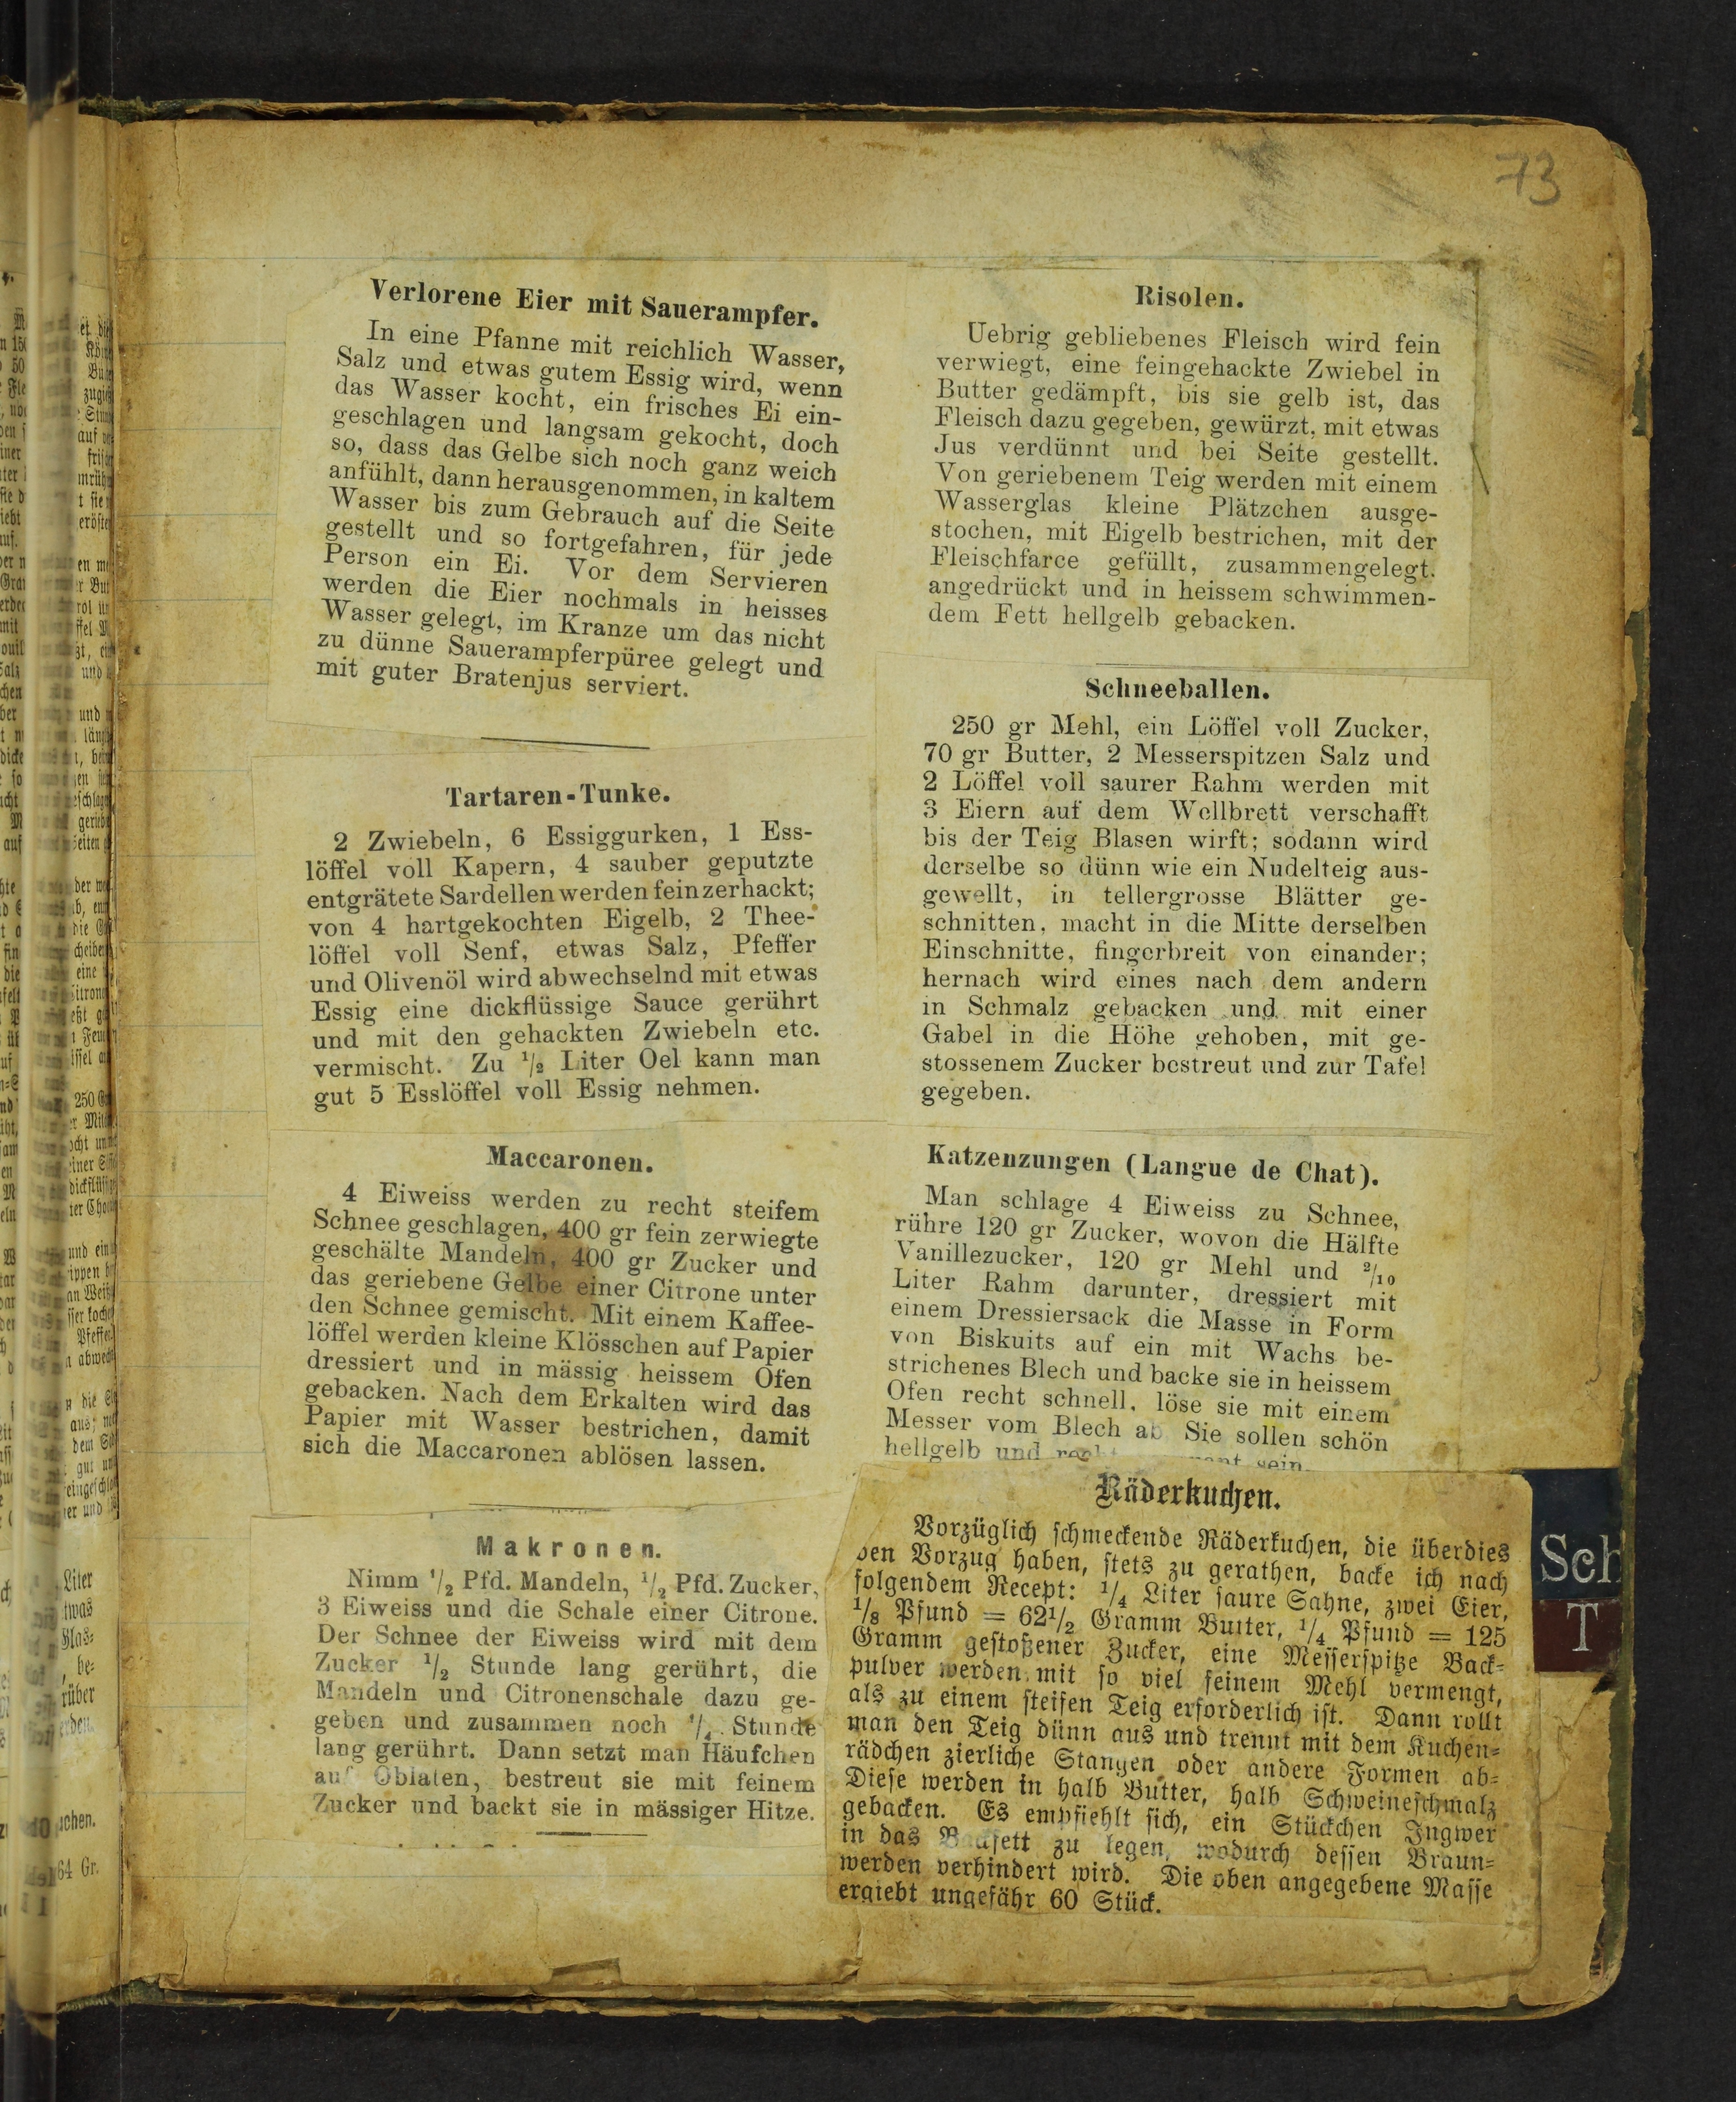 73
Verlorene Eier mit Sauerampfer.
In eine Pfanne mit reichlich Wasser,
Salz und etwas gutem Essig wird, wenn
das Wasser kocht, ein frisches Ei ein-
geschlagen und langsam gekocht, doch
so, dass das Gelbe sich noch ganz weich
anfühlt, dann herausgenommen, in kaltem
Wasser bis zum Gebrauch auf die Seite
gestellt und so fortgefahren, für jede
Person ein Ei. Vor dem Servieren
werden die Eier nochmals in heisses
Wasser gelegt, im Kranze um das nicht
zu dünne Sauerampferpüree gelegt und
mit guter Bratenjus serviert.
Tartaren-Tunke.
2 Zwiebeln, 6 Essiggurken, 1 Ess-
löffel voll Kapern, 4 sauber geputzte
entgrätete Sardellen werden fein zerhackt;
von 4 hartgekochten Eigelb, 2 Thee-
löffel voll Senf, etwas Salz, Pfeffer
und Olivenöl wird abwechselnd mit etwas
Essig eine dickflüssige Sauce gerührt
und mit den gehackten Zwiebeln etc.
vermischt. Zu 1/2 Liter Oel kann man
gut 5 Esslöffel voll Essig nehmen.
Maccaronen.
4 Eiweiss werden zu recht steifem
Schnee geschlagen, 400 gr fein zerwiegte
geschälte Mandeln, 400 gr Zucker und
das geriebene Gelbe einer Citrone unter
den Schnee gemischt. Mit einem Kaffee-
löffel werden kleine Klösschen auf Papier
dressiert und in mässig heissem Ofen
gebacken. Nach dem Erkalten wird das
Papier mit Wasser bestrichen, damit
sich die Maccaronen ablösen lassen.
Makronen.
Nimm 1/2 Pfd. Mandeln, 1/2 Pfd. Zucker,
3 Eiweiss und die Schale einer Citrone.
Der Schnee der Eiweiss wird mit dem
Zucker 1/2 Stunde lang gerührt, die
Mandeln und Citronenschale dazu ge-
geben und zusammen noch 1/4 Stunde
lang gerührt. Dann setzt man Häufchen
auf Oblaten, bestreut sie mit feinem
Zucker und backt sie in mässiger Hitze.
Risolen.
Uebrig gebliebenes Fleisch wird fein
verwiegt, eine feingehackte Zwiebel in
Butter gedämpft, bis sie gelb ist, das
Fleisch dazu gegeben, gewürzt, mit etwas
Jus verdünnt und bei Seite gestellt.
Von geriebenem Teig werden mit einem
Wasserglas kleine Plätzchen ausge-
stochen, mit Eigelb bestrichen, mit der
Fleischfarce gefüllt, zusammengelegt,
angedrückt und in heissem schwimmen-
dem Fett hellgelb gebacken.
Schneeballen.
250 gr Mehl, ein Löffel voll Zucker,
70 gr Butter, 2 Messerspitzen Salz und
2 Löffel voll saurer Rahm werden mit
3 Eiern auf dem Wellbrett verschafft
bis der Teig Blasen wirft; sodann wird
derselbe so dünn wie ein Nudelteig aus-
gewellt, in tellergrosse Blätter ge-
schnitten, macht in die Mitte derselben
Einschnitte, fingerbreit von einander;
hernach wird eines nach dem andern
in Schmalz gebacken und mit einer
Gabel in die Höhe gehoben, mit ge-
stossenem Zucker bestreut und zur Tafel
gegeben.
Katzenzungen (Langue de Chat).
Man schlage 4 Eiweiss zu Schnee,
rühre 120 gr Zucker, wovon die Hälfte
Vanillezucker, 120 gr Mehl und 2/10
Liter Rahm darunter, dressiert mit
einem Dressiersack die Masse in Form
von Biskuits auf ein mit Wachs be-
strichenes Blech und backe sie in heissem
Ofen recht schnell, löse sie mit einem
Messer vom Blech ab Sie sollen schön
hellgelb und sein.
Räderkuchen.
Vorzüglich schmeckende Räderkuchen, die überdies
den Vorzug haben, stets zu gerathen, backe ich nach
folgendem Recept: 1/4 Liter saure Sahne, zwei Eier,
1/8 Pfund = 62 1/2 Gramm Butter, 1/4 Pfund = 125
Gramm gestoßener Zucker, eine Messerspitze Back-
pulver werden mit so viel feinem Mehl vermengt,
als zu einem steifen Teig erforderlich ist. Dann rollt
man den Teig dünn aus und trennt mit dem Kuchen-
rädchen zierliche Stangen oder andere Formen ab-
Diese werden in halb Butter, halb Schweineschmalz
gebacken. Es empfiehlt sich, ein Stückchen Ingwer
in das zu legen, wodurch dessen Braun-
werden verhindert wird. Die oben angegebene Masse
ergiebt ungefähr 60 Stück.
Sch
T